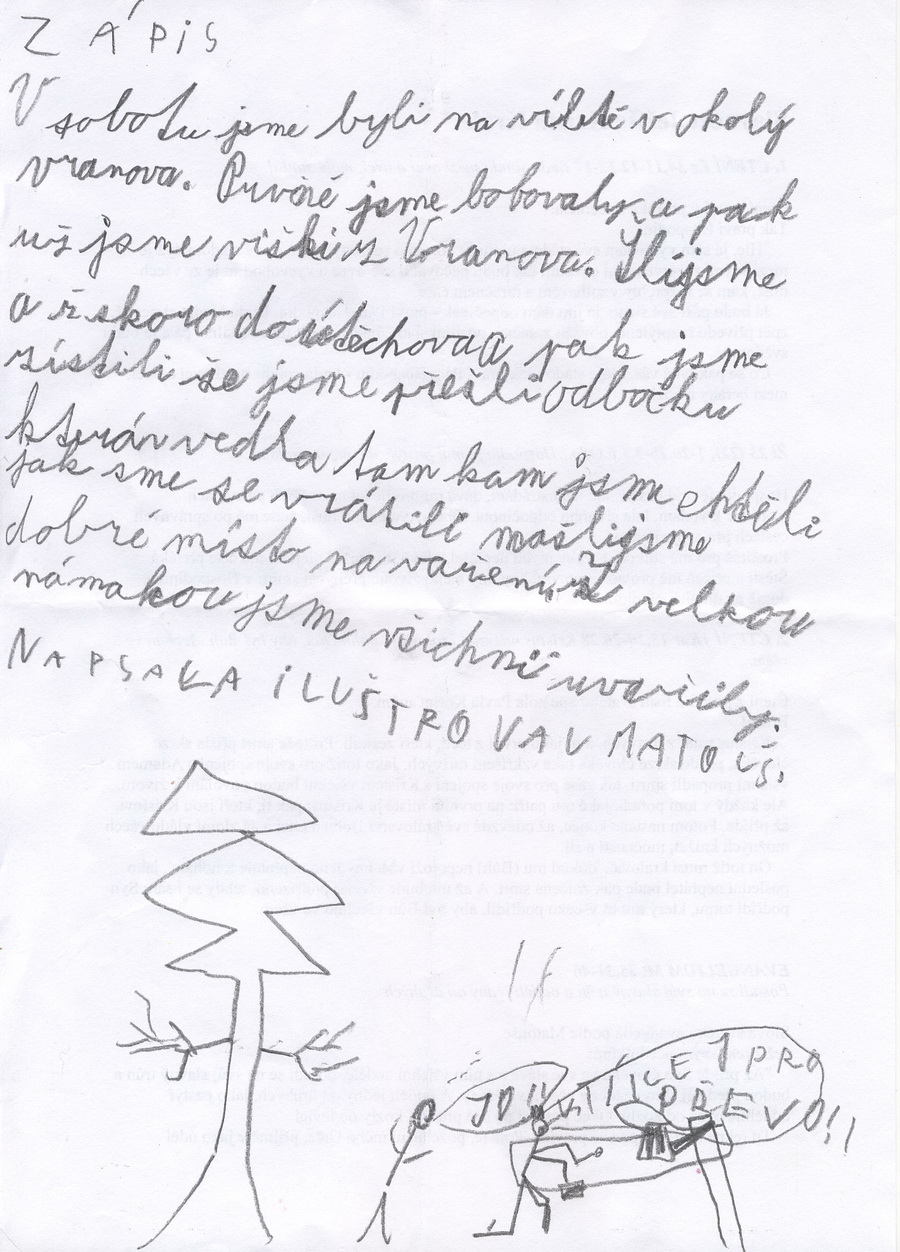 ZÁPIS
V sobotu jsme byli na víletě v okolý
vranova. Puvoně jsme bobovaly, a pak
už jsme višli z Vranova. Šlijsme
a ž skoro do
pak jsme
sístili še jsme přešli odbočku
kterár vedla tam kam jsme chtěli
jak sme se vrátili našlijsme
dobré místo na vareni velkou
námakou jsme všichni uvařily.
NAPSAL A ILUŠTROVAL MATOUŠ.
JDU
KLICE PRO
DŘEVO!!